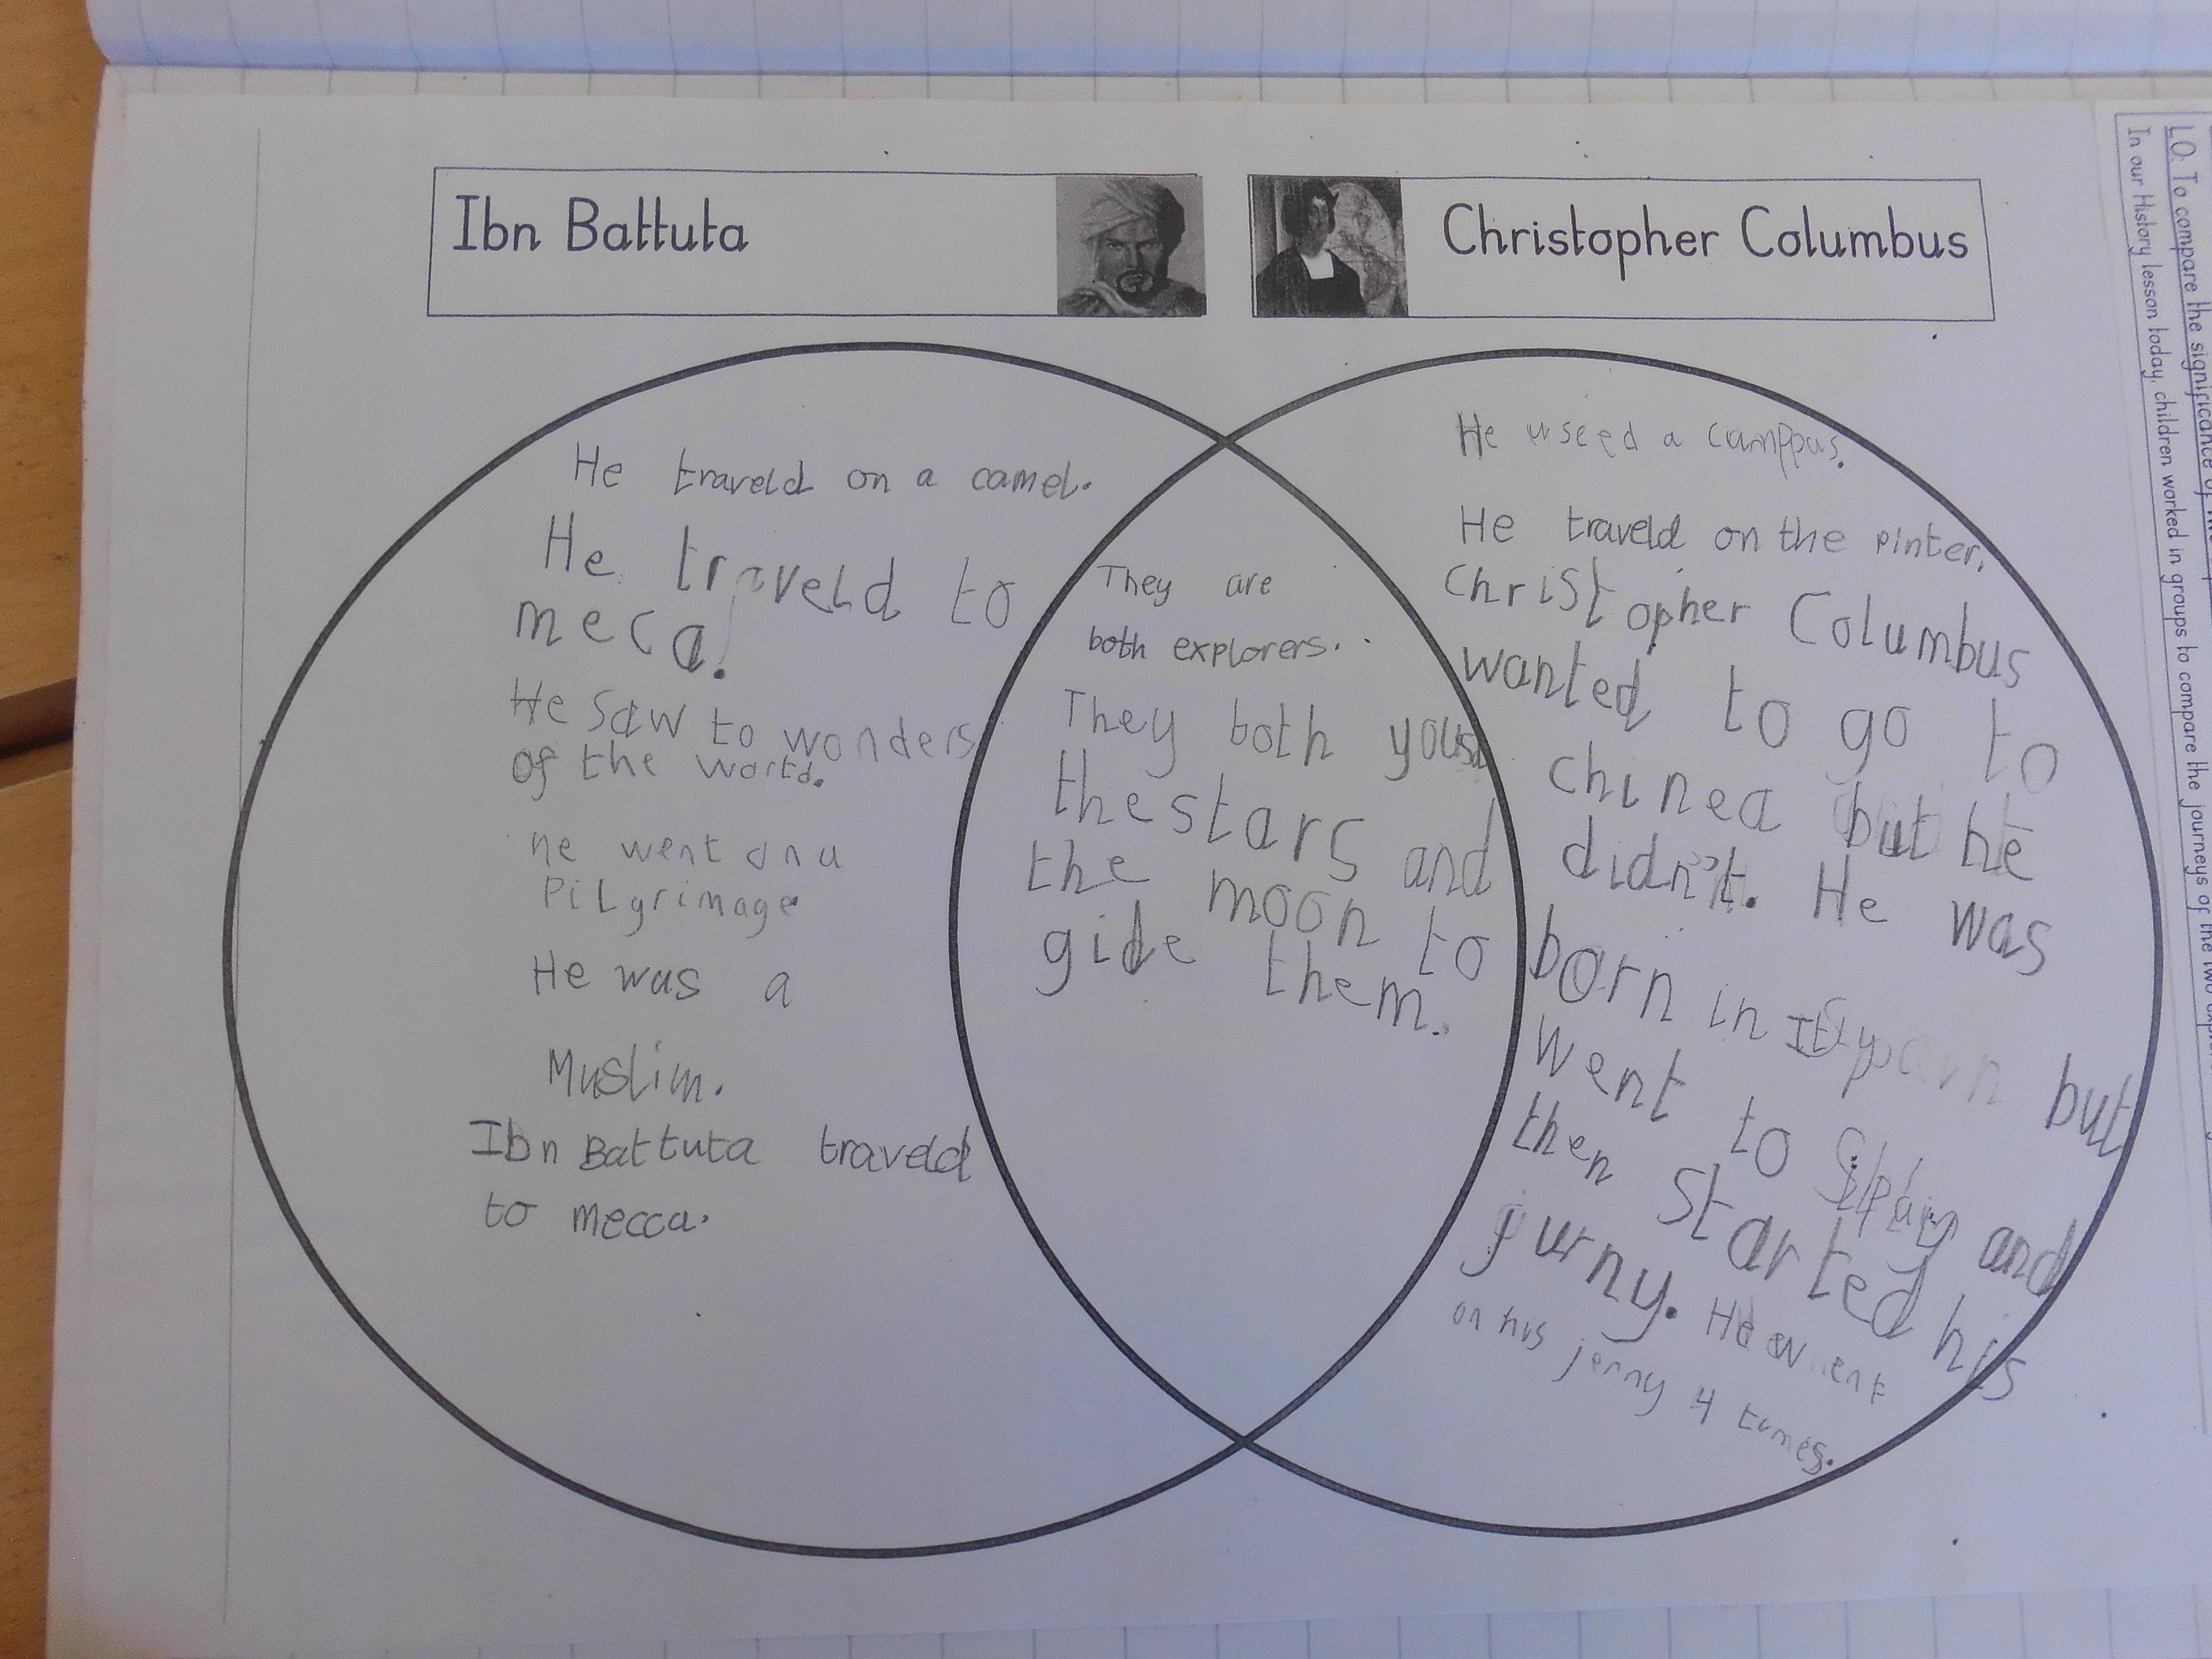 Ibn Battuta
Christopher Columbus
He traveld on a camel.
He traveld to
meca.
He saw to wonders
of the world.
he went on a
PiLgrimage
He was a
Muslim.
Ibn Battuta traveld
to mecca.
They are
both explorers.
They both yous
the stars and
the moon to
gide them.
He useed a camppas.
He traveld on the pinter.
christopher Columbus
wanted to go to
chinea but he
didn't. He was
born in but
went to and
then started his
jurny. He went
on his jerny 4 times.
LO: To compare the significance of
In our History lesson today, children worked in groups to compare the journeys of the two